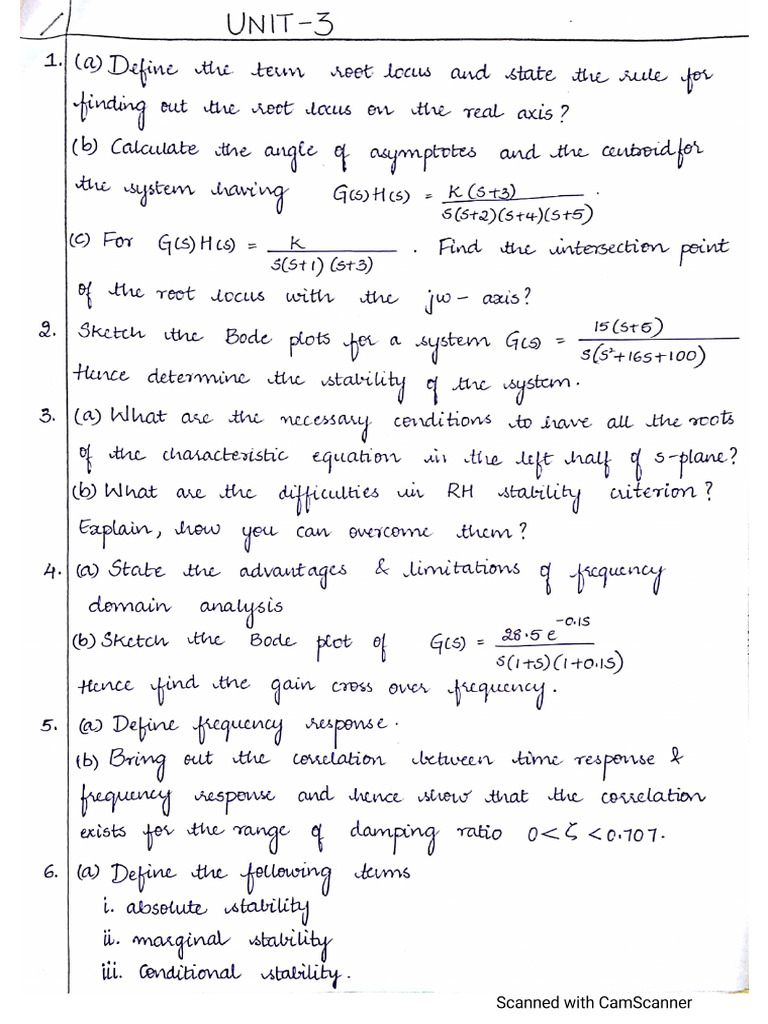 UNIT-3
1. (a) Define the term root locus and state the rule for
finding out the root locus on the real axis?
(b) Calculate the angle of asymptotes and the centroid for
the system having G(s)H(s) = K(s+3) / s(s+2)(s+4)(s+5) .
(c) For G(s)H(s) = K / s(s+1)(s+3) . Find the intersection point
of the root locus with the jω - axis?
2. Sketch the Bode plots for a system G(s) = 15(s+5) / s(s²+16s+100)
Hence determine the stability of the system.
3. (a) What are the necessary conditions to have all the roots
of the characteristic equation in the left half of s-plane?
(b) What are the difficulties in RH stability criterion?
Explain, how you can overcome them?
4. (a) State the advantages & limitations of frequency
domain analysis
(b) Sketch the Bode plot of G(s) = 28.5 e^-0.1s / s(1+s)(1+0.1s)
Hence find the gain cross over frequency.
5. (a) Define frequency response.
(b) Bring out the correlation between time response &
frequency response and hence show that the correlation
exists for the range of damping ratio 0<ζ<0.707.
6. (a) Define the following terms
i. absolute stability
ii. marginal stability
iii. Conditional stability.
Scanned with CamScanner